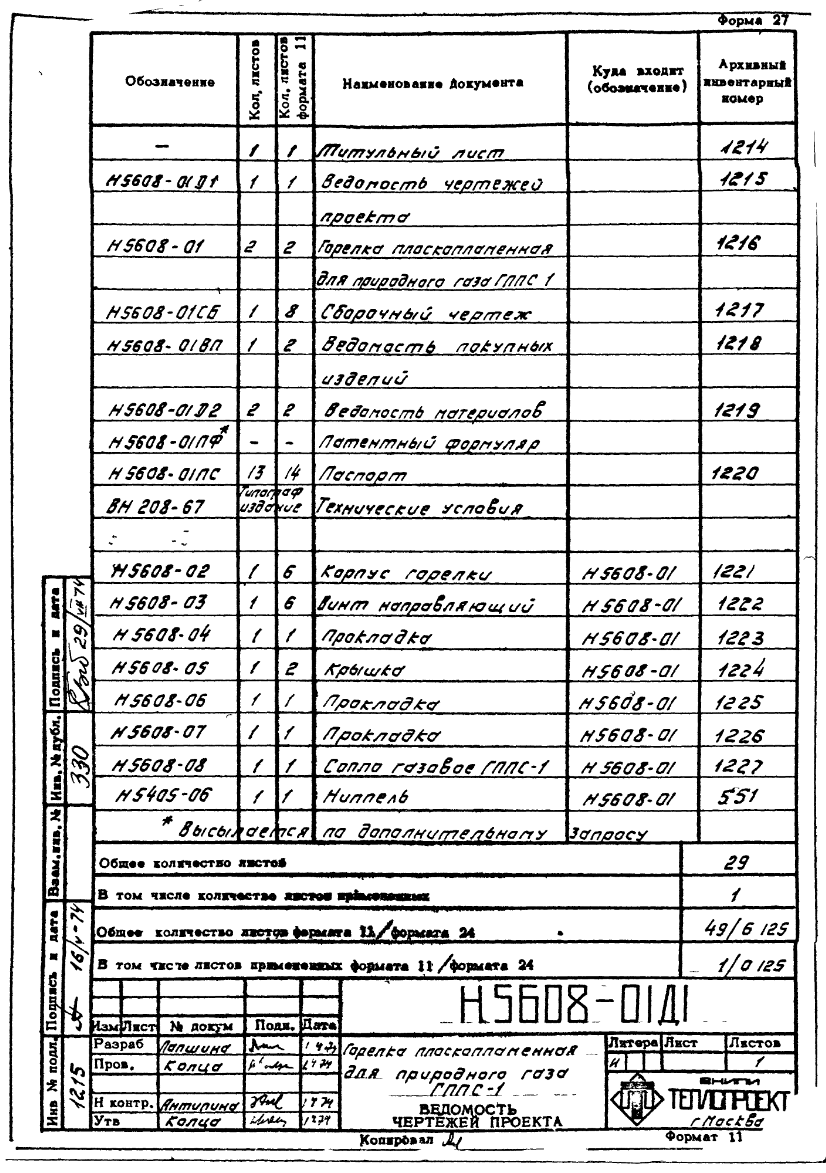 Форма 27
Обозначение Кол. листов Кол. листов формата 11 Наименование документа Куда входит (обозначение) Архивный инвентарный номер
— 1 1 Титульный лист 1214
Н5608-01Д1 1 1 Ведомость чертежей 1215
проекта
Н5608-01 2 2 Горелка плоскопламенная 1216
для природного газа ГППС 1
Н5608-01СБ 1 8 Сборочный чертеж 1217
Н5608-01ВП 1 2 Ведомость покупных 1218
изделий
Н5608-01Д2 2 2 Ведомость материалов 1219
Н5608-01ПФ* - - Патентный формуляр
Н5608-01ПС 13 14 Паспорт 1220
ВН 208-67 Типограф издание Технические условия
Н5608-02 1 6 Корпус горелки Н5608-01 1221
Н5608-03 1 6 Винт направляющий Н5608-01 1222
Н5608-04 1 1 Прокладка Н5608-01 1223
Н5608-05 1 2 Крышка Н5608-01 1224
Н5608-06 1 1 Прокладка Н5608-01 1225
Н5608-07 1 1 Прокладка Н5608-01 1226
Н5608-08 1 1 Сопло газовое ГППС-1 Н5608-01 1227
Н5405-06 1 1 Ниппель Н5608-01 551
* Высылается по дополнительному запросу
Общее количество листов 29
В том числе количестве листов примененных 1
Общее количество листов формата 11/формата 24 49/6 125
В том числе листов примененных формата 11/формата 24 1/0 125
Инв № подл. 1215
Подпись и дата 16/V-74
Взам.инв. №
Инв. № дубл. 330
Подпись и дата 29/VII 74
Н5608-01Д1
Изм Лист № докум Подп. Дата
Разраб Лапшина
Пров. Копца
Н контр. Антипина
Утв Копца
Горелка плоскопламенная
для природного газа
ГППС-1
ВЕДОМОСТЬ
ЧЕРТЕЖЕЙ ПРОЕКТА
Литера Лист Листов
И 1
ВНИПИ
ТЕПЛОПРОЕКТ
г. Москва
Копировал
Формат 11